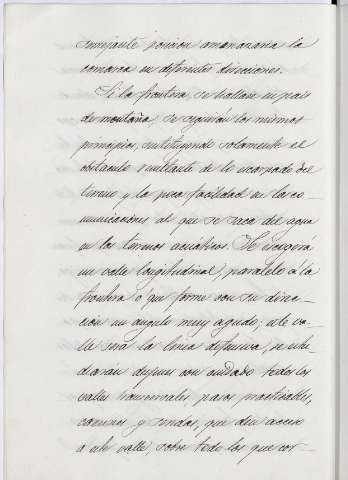 semejante posicion amenazaria la
comarca en diferentes direcciones.
Si la frontera, se hallase en pais
de montaña, se seguirán los mismos
principios, sustituyendo solamente el
obstáculo resultante de lo escarpado del
terreno y la poca facilidad en las co-
municaciones al que se saca del agua
en los terrenos acuáticos. Se escogerá
un valle longitudinal, paralelo á la
frontera ó que forme con su direc-
cion un angulo muy agudo; este va-
lle será la linea defensiva, se estu-
diaran despues con cuidado todos los
valles transversales, pasos practicables,
caminos y sendas, que den acceso
a este valle, sobre todo los que cor-